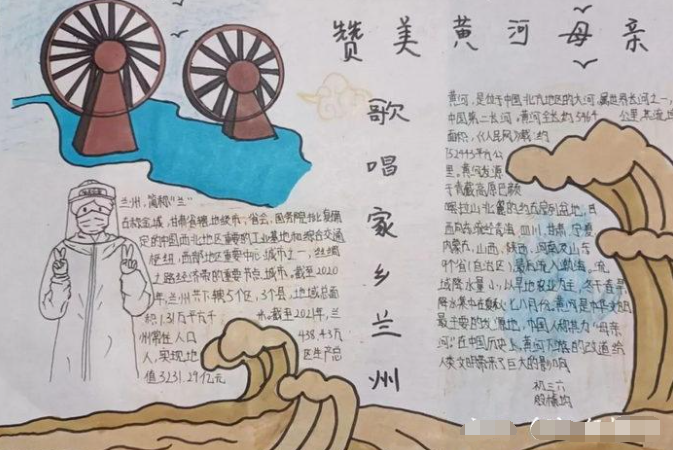 赞美黄河母亲
歌唱家乡兰州
兰州,简称"兰"
古称金城,甘肃省辖地级市,省会,国务院批复确
定的中国西北地区重要的工业基地和综合交通
枢纽,西部地区重要中心城市之一,丝绸
之路经济带的重要节点城市。截至2020
年,兰州共下辖5个区,3个县,地域总面
积1.31万平方千米。截至2021年,兰
州常住人口438.43万
人,实现地区生产总
值3231.29亿元
黄河,是位于中国北方地区的大河,属世界长河之一,
中国第二长河。黄河全长约5464公里,流域
面积,《人民网》载:约
752443平方公
里。黄河发源
于青藏高原巴颜
喀拉山北麓的约古宗列盆地,自
西向东流经青海,四川,甘肃,宁夏
内蒙古,山西,陕西,河南及山东
9个省(自治区),最后流入渤海,流
域降水量小,以旱地农业为主,冬干春旱,
降水集中在夏秋七八月份。黄河是中华文明
最主要的发源地,中国人称其为"母亲
河"在中国历史上,黄河下游的改道给
人类文明带来了巨大的影响
初三六